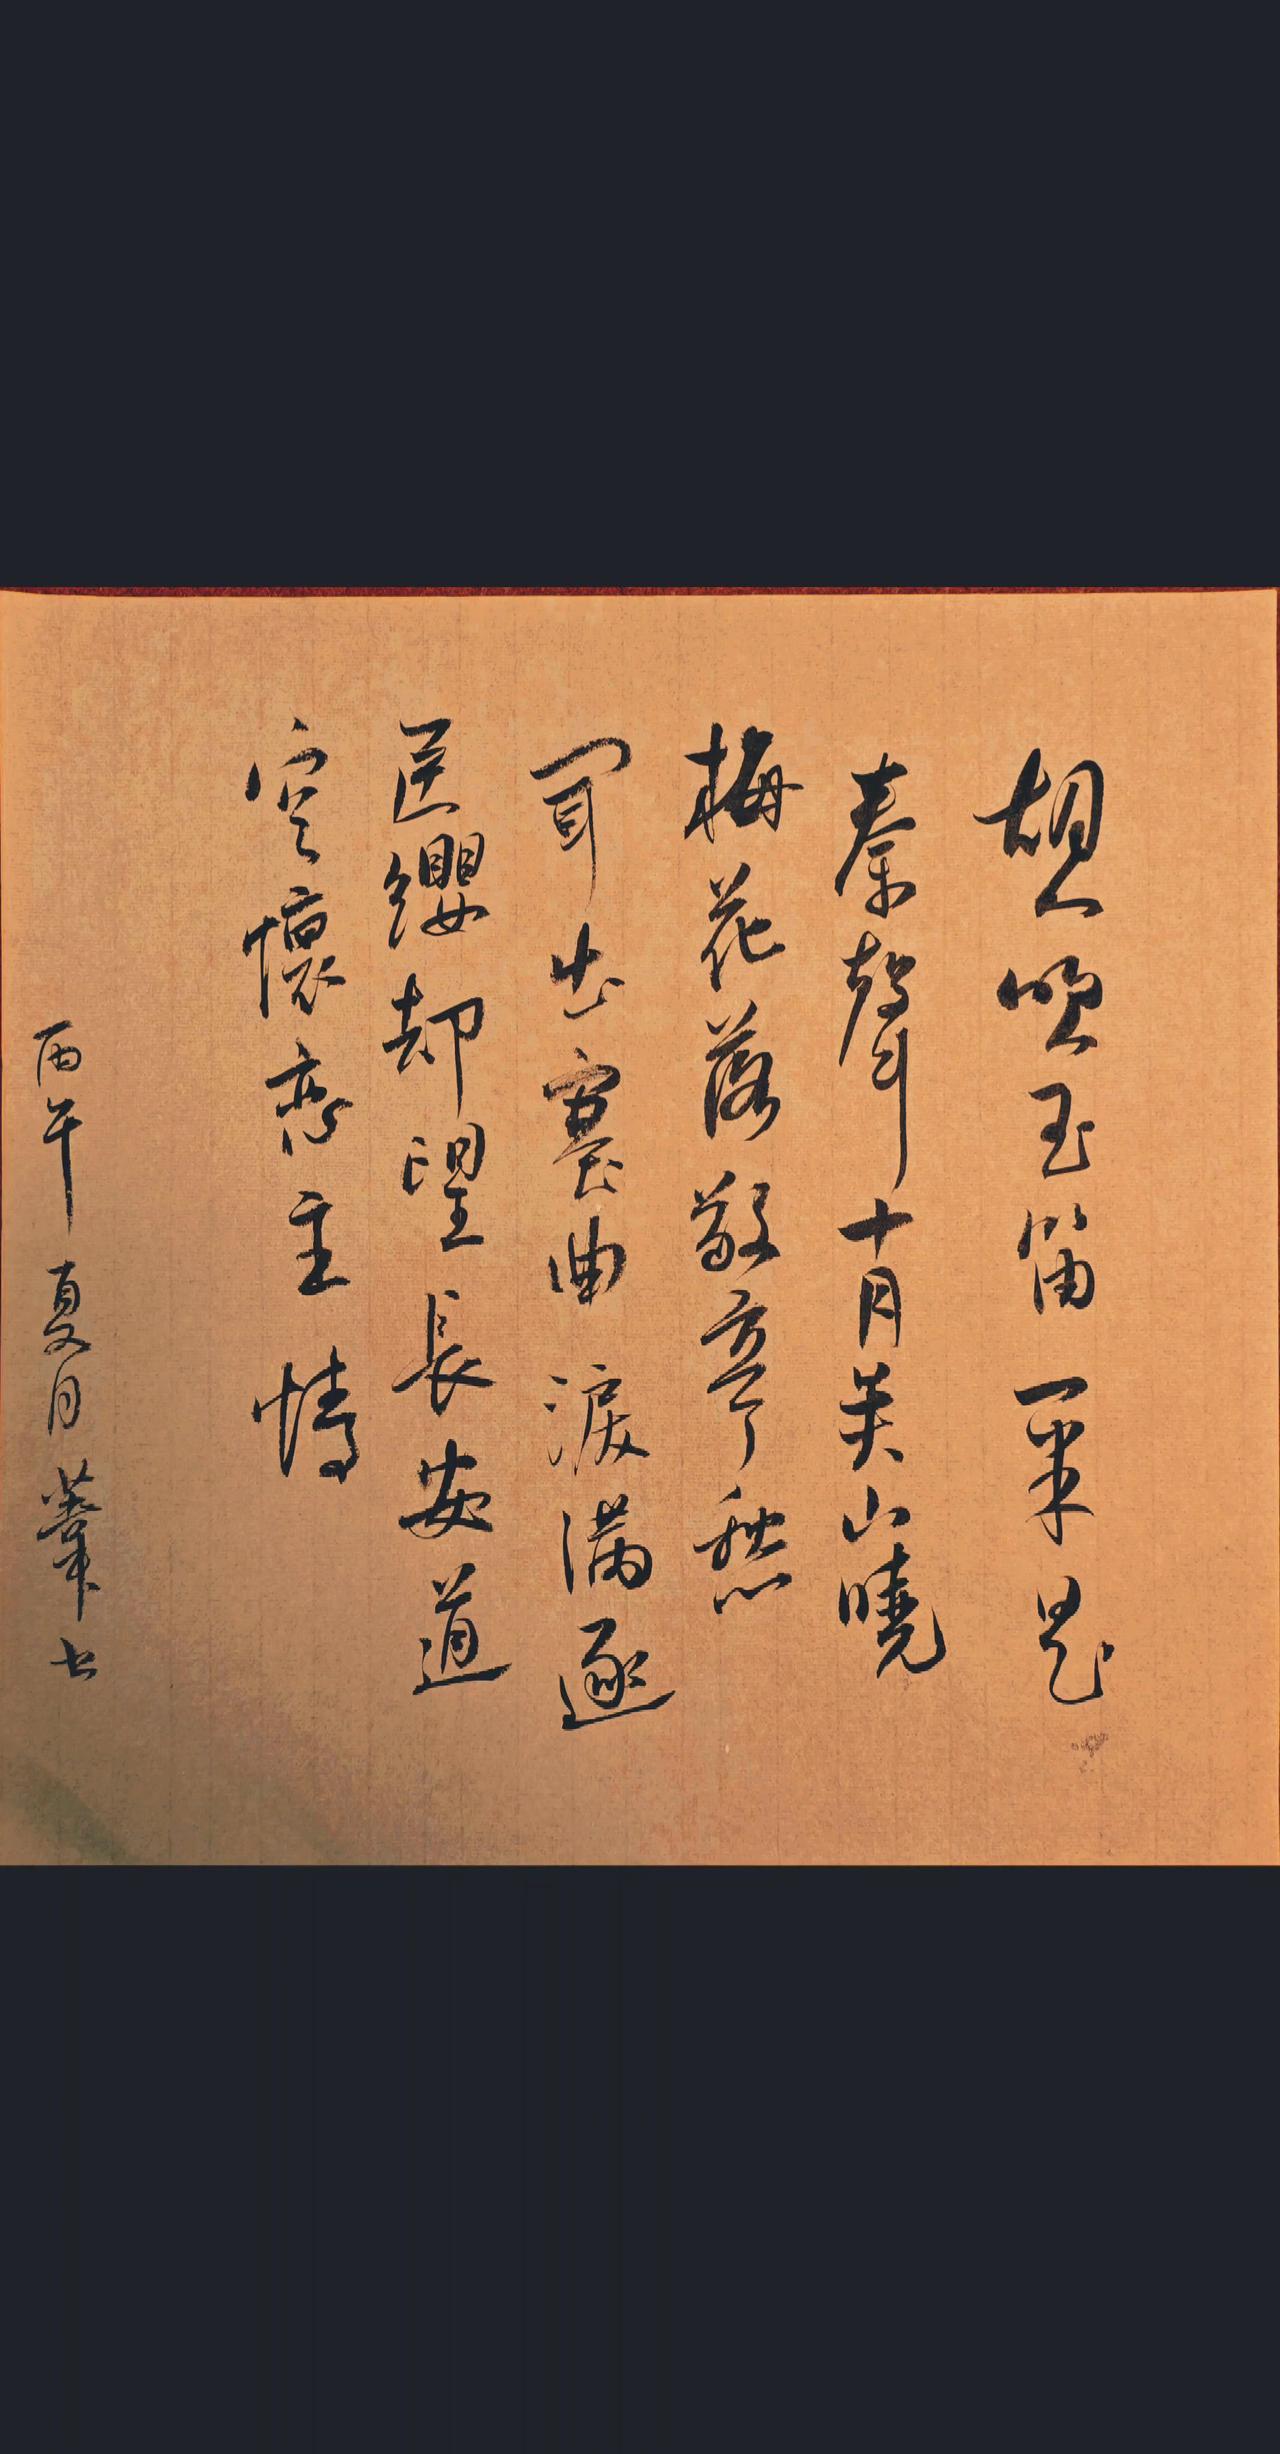 胡人吹玉笛一半是
秦聲十月吴山曉
梅花落敬亭愁
闻出塞曲淚满逐
臣纓却望長安道
空懷恋主情
丙午夏月书